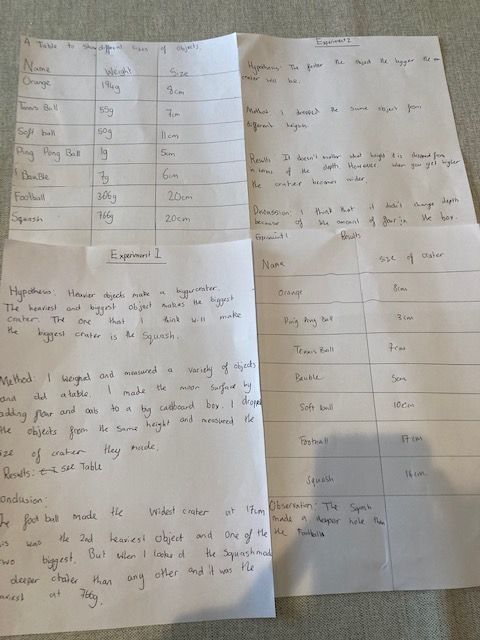 A Table to show different Sizes of Objects.
Name Weight Size
Orange 184g 8cm
Tennis Ball 55g 7cm
Soft ball 50g 11cm
Ping Pong Ball 1g 5cm
Bauble 7g 6cm
Football 366g 20cm
Squash 766g 20cm
Experiment 2
Hypothesis: The faster the the bigger the
crater will be.
Method: I dropped the same object from
different heights.
Results It doesn't matter what height it is dropped from
in terms of the depth. However when you get higher
the crater becomes wider.
Discussion: I think that it didn't change depth
because of the amount of flour in the box.
Experiment 1
Hypothesis: Heavier objects make a bigger crater.
The heaviest and biggest object makes the biggest
crater. The one that I think will make
the biggest crater is the Squash.
Method: I weighed and measured a variety of objects
and did a table. I made the moon surface by
adding flour and oats to a big cardboard box. I droped
the objects from the same height and measured the
size of crater they made.
Results: See Table
onclusion:
The foot ball made the Widest crater at 17cm
is was the 2nd heaviest object and one of the
two biggest. But when I looked at the Squash made
deeper crater than any other and it was the
aviest at 766g.
Experiment 1 Results
Name Size of crater
Orange 8cm
Ping Pong Ball 3cm
Tennis Ball 7cm
Bauble 5cm
Soft ball 10cm
Football 17cm
Squash 16cm
Observation: The Squash
made a deeper hole than
the football